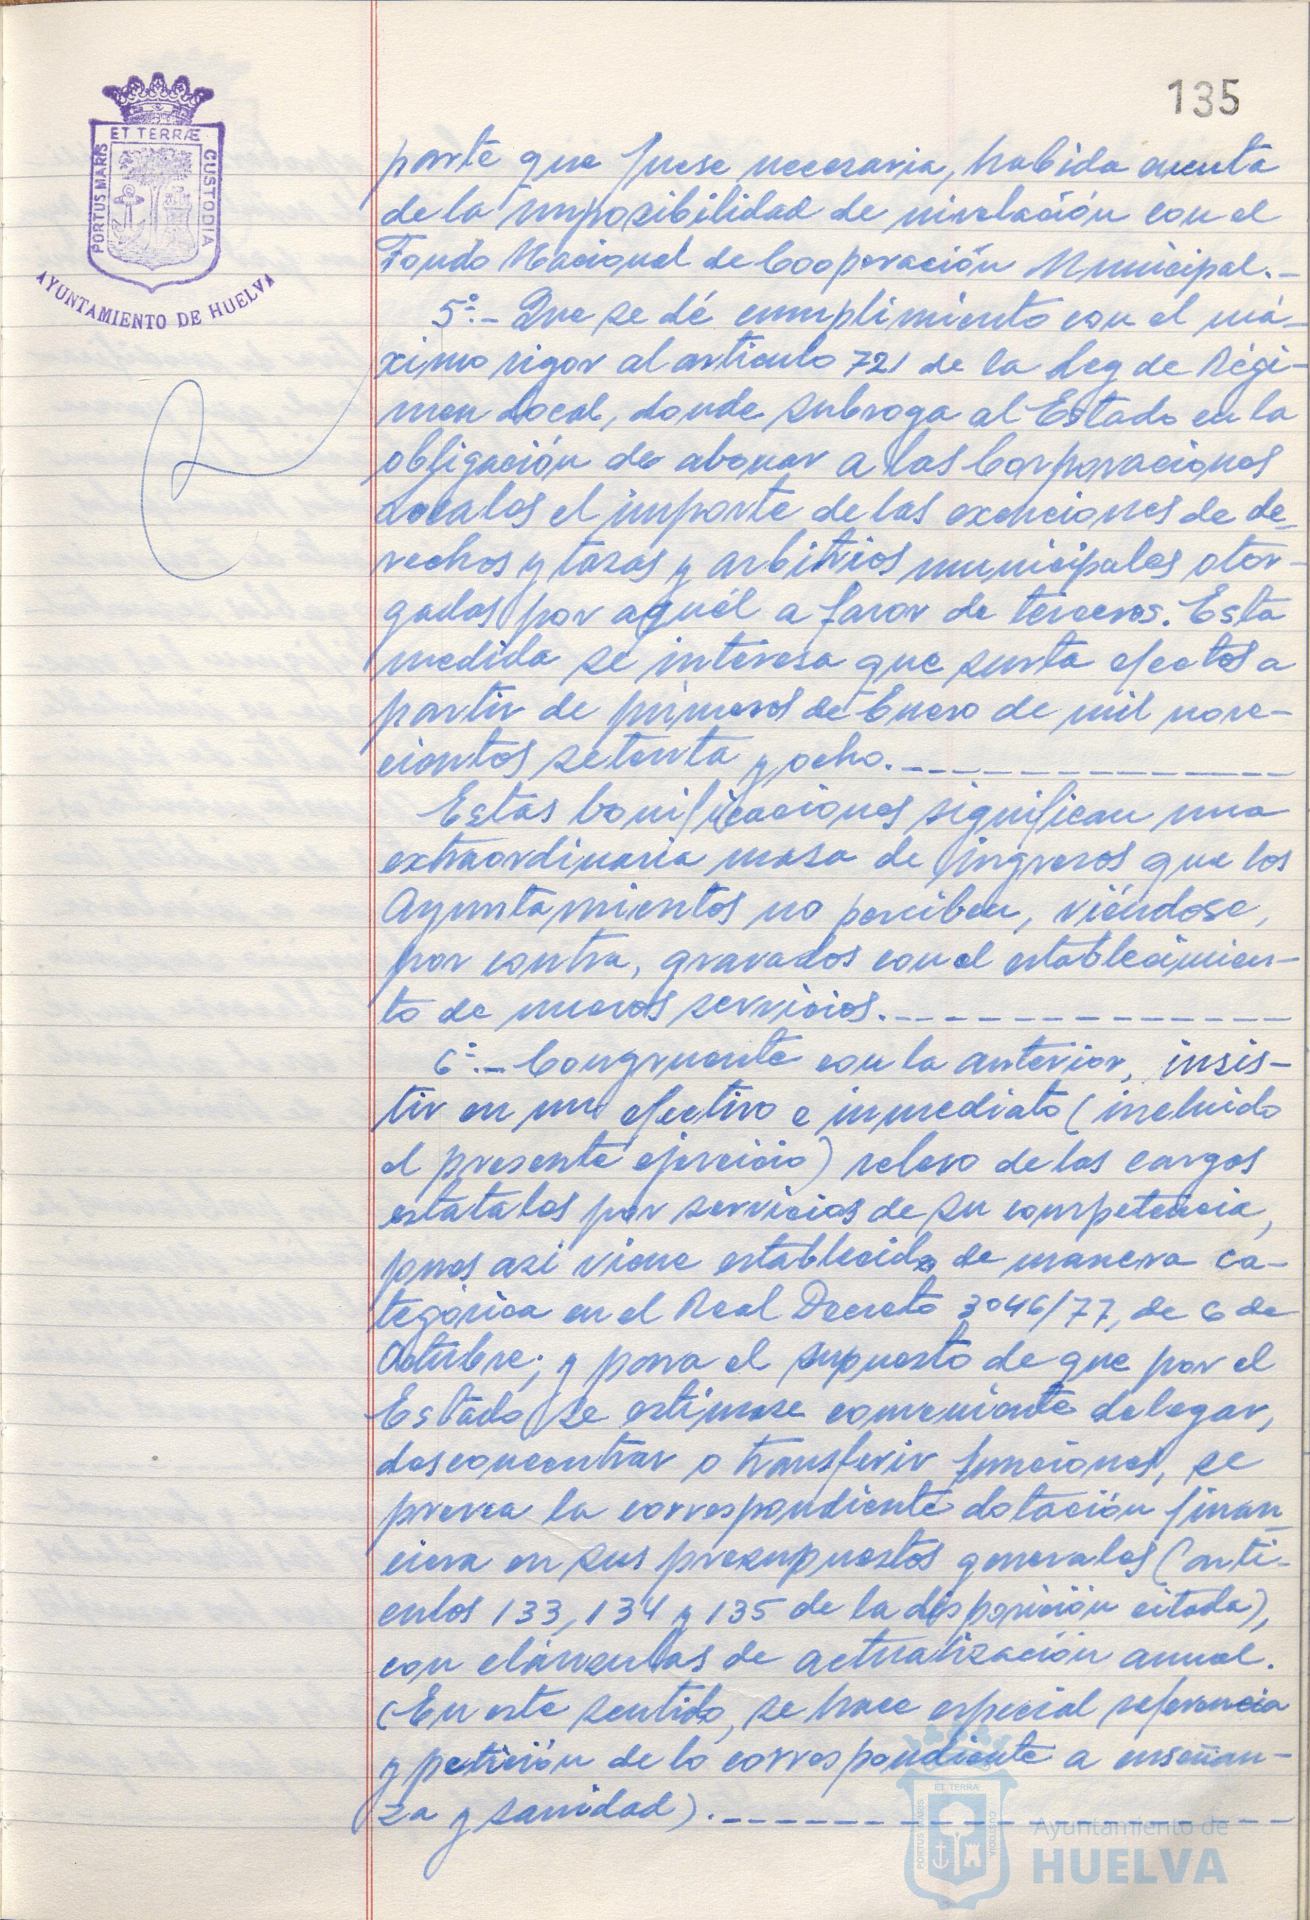 135
ET TERRÆ
PORTUS MARIS
CUSTODIA
AYUNTAMIENTO DE HUELVA
parte que fuese necesaria, habida cuenta
de la imposibilidad de nivelación con el
Fondo Nacional de Cooperación Municipal.-
5º.- Que se dé cumplimiento con el má-
ximo rigor al artículo 721 de la Ley de Régi-
men Local, donde subroga al Estado en la
obligación de abonar a las Corporaciones
Locales el importe de las exenciones de de-
rechos y tasas y arbitrios municipales otor-
gados por aquél a favor de terceros. Esta
medida se interesa que surta efectos a
partir de primeros de Enero de mil nove-
cientos setenta y ocho.
Estas bonificaciones significan una
extraordinaria masa de ingresos que los
Ayuntamientos no perciben, viéndose,
por contra, gravados con el establecimien-
to de nuevos servicios.
6º.- Congruente con la anterior, insis-
tir en un efectivo e inmediato (incluido
el presente ejercicio) relevo de las cargas
estatales por servicios de su competencia,
pues así viene establecido de manera ca-
tegórica en el Real Decreto 3046/77, de 6 de
Octubre; y para el supuesto de que por el
Estado se estimase conveniente delegar,
desconcentrar o transferir funciones, se
prevea la correspondiente dotación finan-
ciera en sus presupuestos generales (artí-
culos 133, 134 y 135 de la disposición citada),
con cláusulas de actualización anual.
(En este sentido, se hace especial referencia
y petición de lo correspondiente a enseñan-
za y sanidad).
ET TERRA
PORTUS MARIS
CUSTODIA
Ayuntamiento de
HUELVA